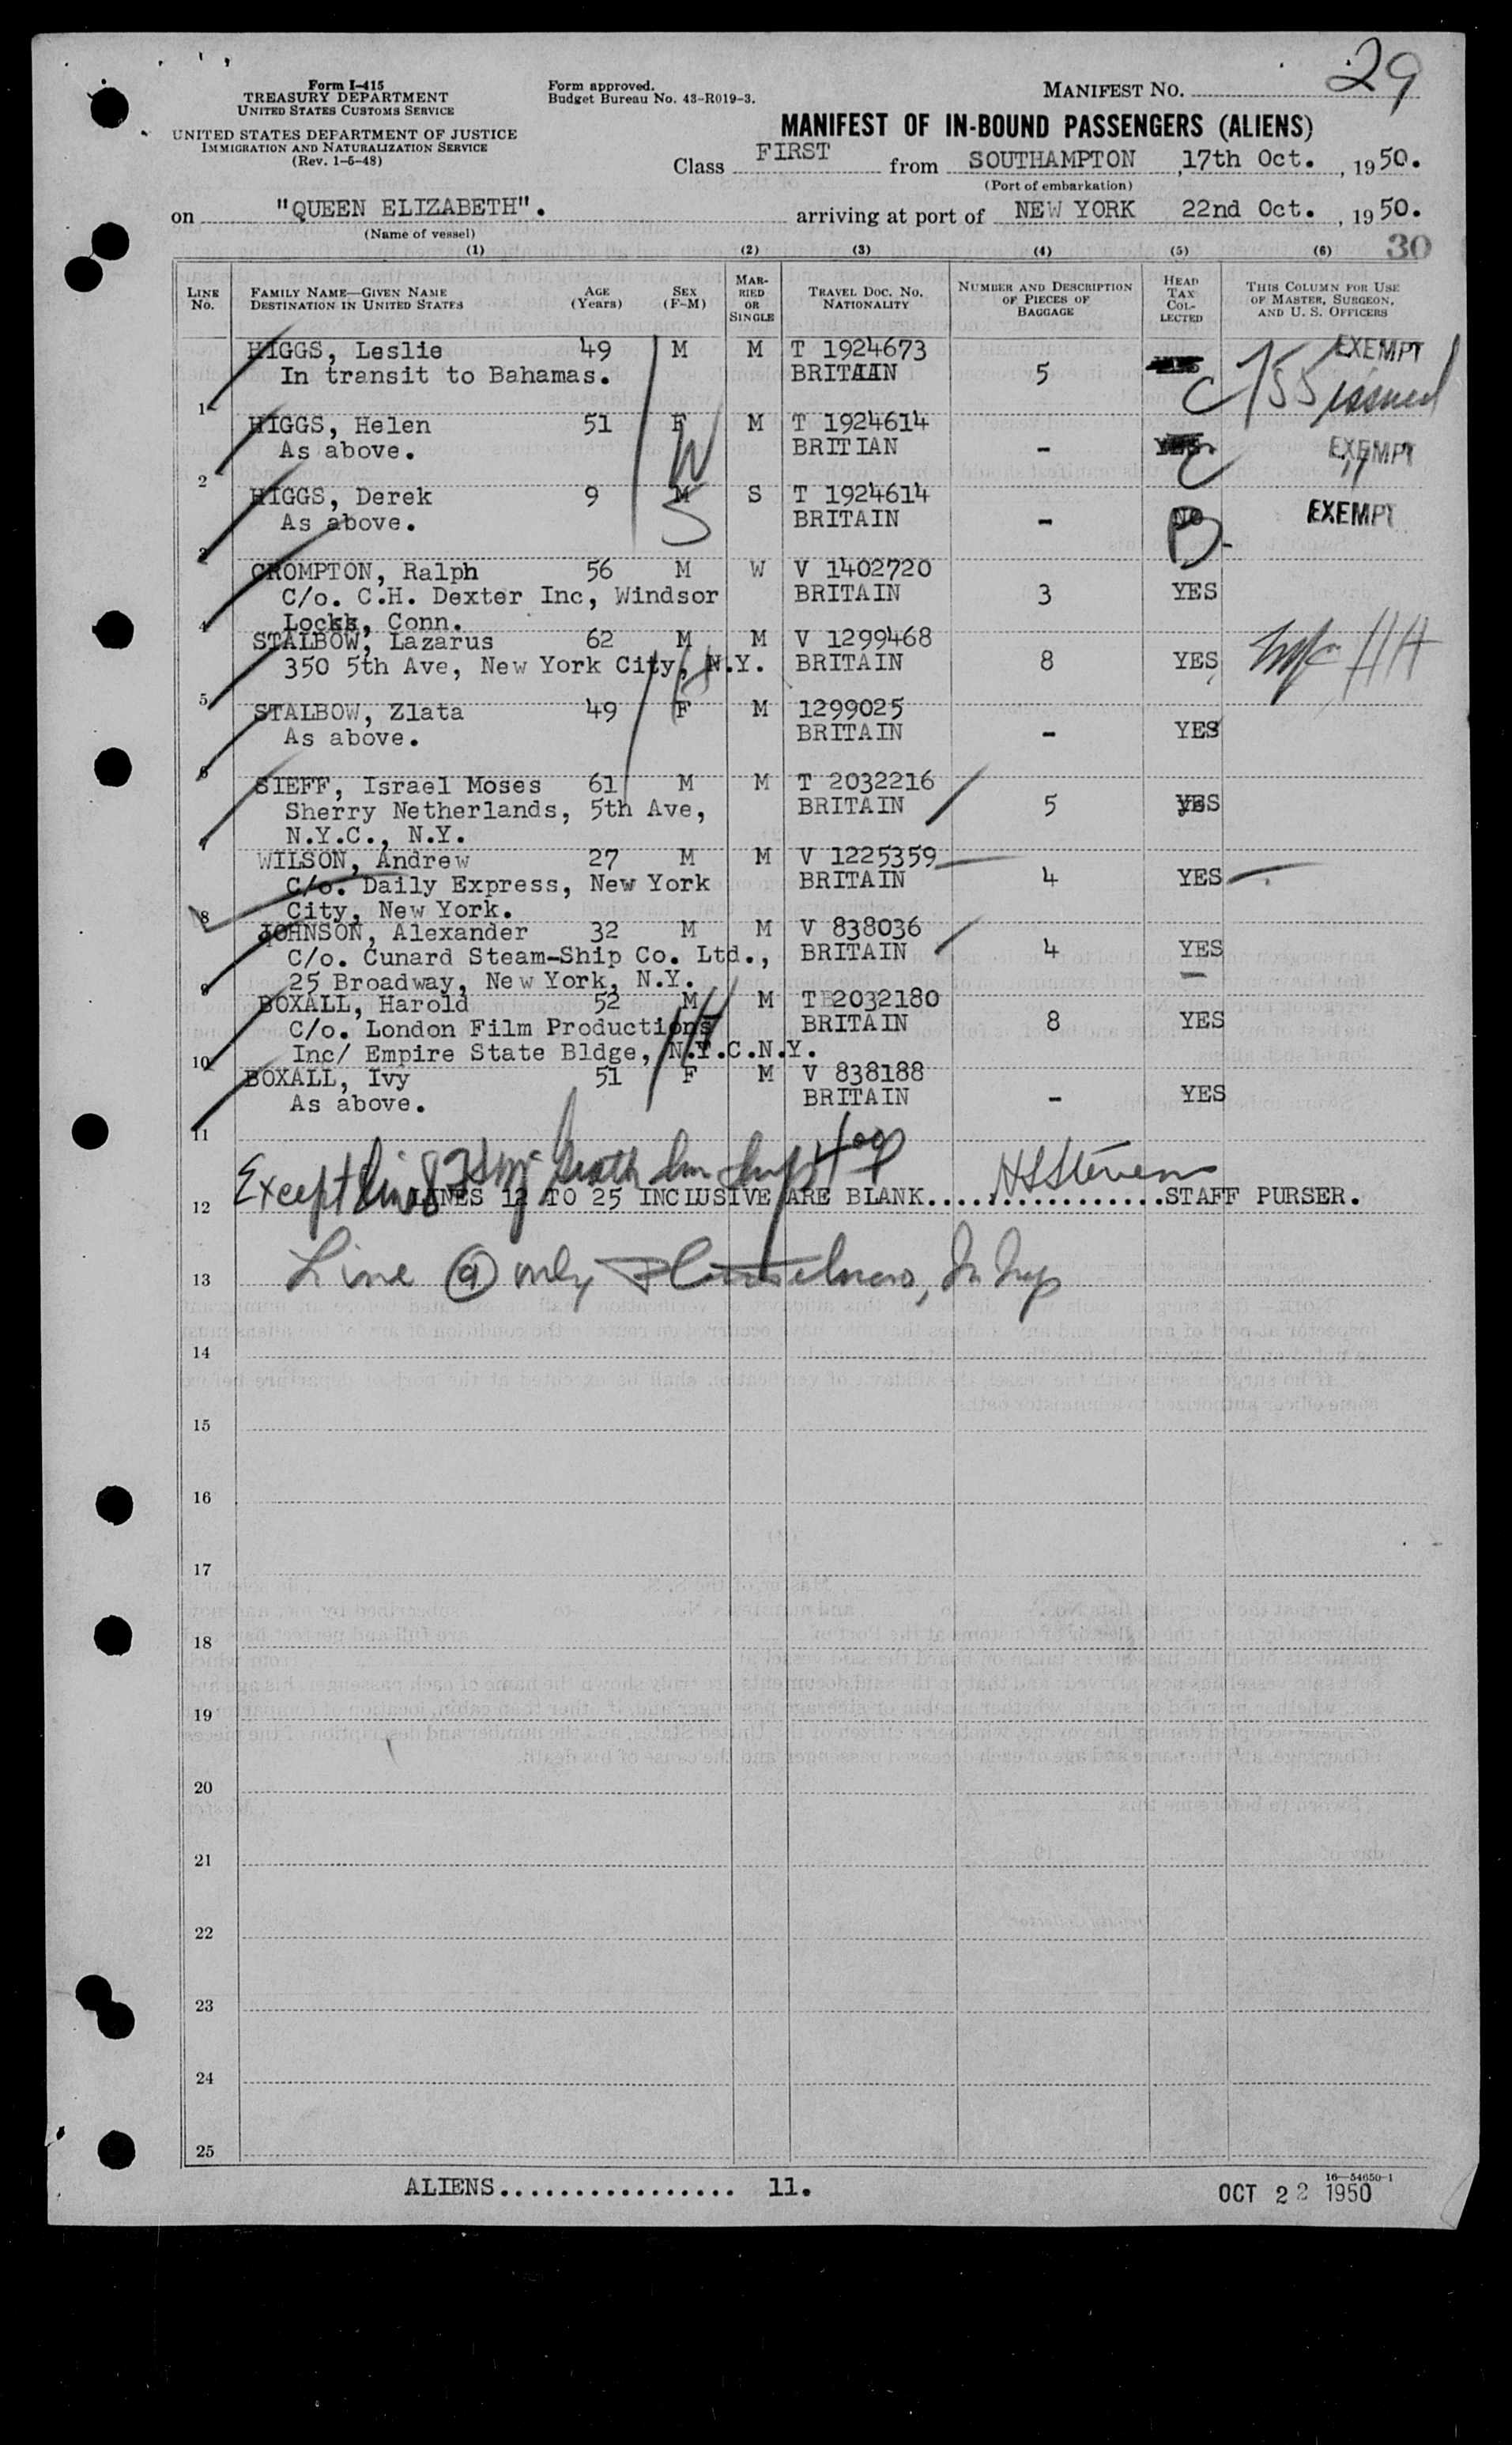 29
Form I-415
TREASURY DEPARTMENT
UNITED STATES CUSTOMS SERVICE
UNITED STATES DEPARTMENT OF JUSTICE
IMMIGRATION AND NATURALIZATION SERVICE
(Rev. 1-5-48)
Form approved.
Budget Bureau No. 43-R019-3.
MANIFEST NO.
MANIFEST OF IN-BOUND PASSENGERS (ALIENS)
Class FIRST from SOUTHAMPTON, 17th Oct., 1950.
(Port of embarkation)
on "QUEEN ELIZABETH". arriving at port of NEW YORK 22nd Oct., 1950.
(Name of vessel)
30
(1) (2) (3) (4) (5) (6)
LINE No. FAMILY NAME—GIVEN NAME DESTINATION IN UNITED STATES AGE (Years) SEX (F-M) MARRIED OR SINGLE TRAVEL DOC. NO. NATIONALITY NUMBER AND DESCRIPTION OF PIECES OF BAGGAGE HEAD TAX COLLECTED THIS COLUMN FOR USE OF MASTER, SURGEON, AND U. S. OFFICERS
HIGGS, Leslie 49 M M T 1924673 EXEMPT
In transit to Bahamas. BRITAIN 5 C issued
1
HIGGS, Helen 51 F M T 1924614
As above. W BRITIAN - YES C EXEMPT "
2
HIGGS, Derek 9 M S T 1924614
As above. S BRITAIN - NO EXEMPT
3
CROMPTON, Ralph 56 M W V 1402720
C/o. C.H. Dexter Inc, Windsor BRITAIN 3 YES
4 Locks, Conn.
STALBOW, Lazarus 62 M M V 1299468
350 5th Ave, New York City, N.Y. BRITAIN 8 YES
5
STALBOW, Zlata 49 F M 1299025
As above. BRITAIN - YES
6
SIEFF, Israel Moses 61 M M T 2032216
Sherry Netherlands, 5th Ave, BRITAIN 5 YES
7 N.Y.C., N.Y.
WILSON, Andrew 27 M M V 1225359
C/o. Daily Express, New York BRITAIN 4 YES
8 City, New York.
JOHNSON, Alexander 32 M M V 838036
C/o. Cunard Steam-Ship Co. Ltd., BRITAIN 4 YES
9 25 Broadway, New York, N.Y.
BOXALL, Harold 52 M M T 2032180
C/o. London Film Productions BRITAIN 8 YES
10 Inc/ Empire State Bldge, N.Y.C.N.Y.
BOXALL, Ivy 51 F M V 838188
As above. BRITAIN - YES
11
Except line 8
12 LINES 12 TO 25 INCLUSIVE ARE BLANK................STAFF PURSER.
13 Line 9 only
14
15
16
17
18
19
20
21
22
23
24
25
ALIENS................ 11.
16—54650-1
OCT 22 1950